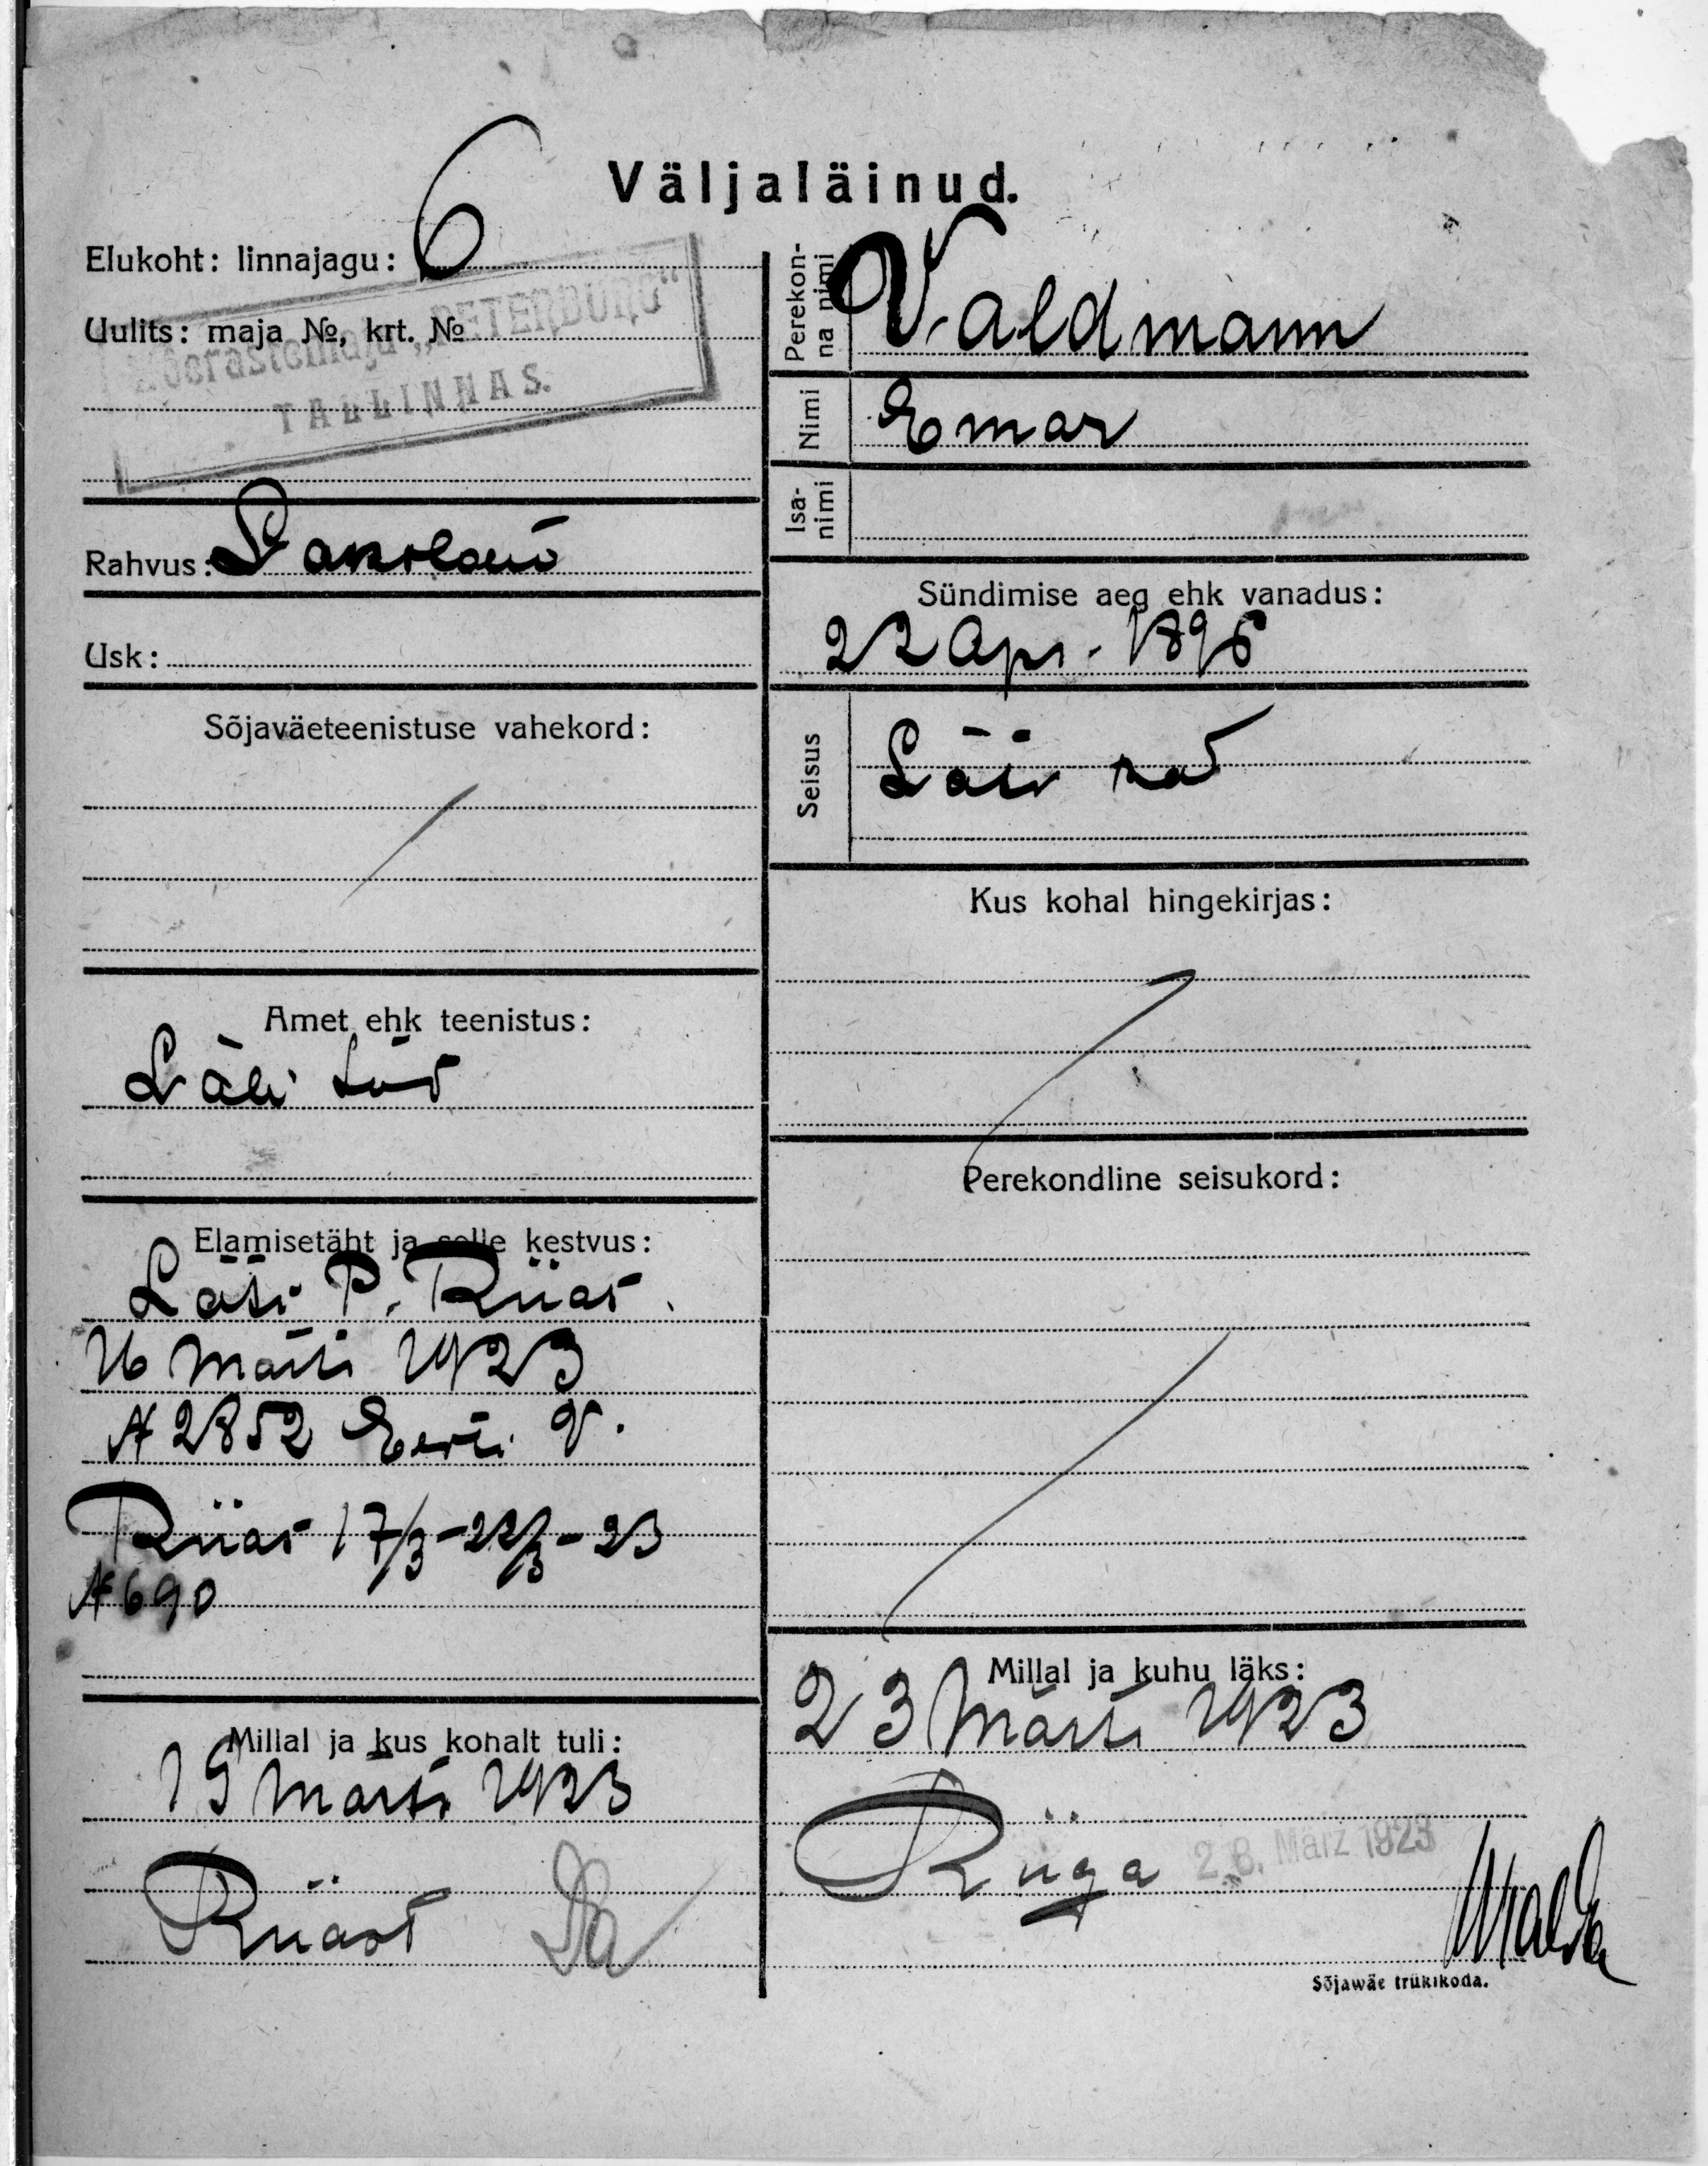 Väljaläinud.
Elukoht: linnajagu: 6
Uulits: maja №, krt. №
Võõrastemaja „PETERBURG“
TALLINNAS.
Rahvus:
Usk:
Sõjaväeteenistuse vahekord:
Amet ehk teenistus:
Elamisetäht ja selle kestvus:
Läti P. Riias
16 Märtsi 1923
№ 2852 Eesti V.
Riias 17/3-22/3-23
№ 690
Millal ja kus kohalt tuli:
19 Märtsi 1923
Riiast
Perekonna nimi
Valdmann
Nimi
Emar
Isanimi
Sündimise aeg ehk vanadus:
22 Apr. 1896
Seisus
Läti
Kus kohal hingekirjas:
Perekondline seisukord:
Millal ja kuhu läks:
23 Märtsi 1923
Riiga
28. März 1923
Sõjawäe trükikoda.